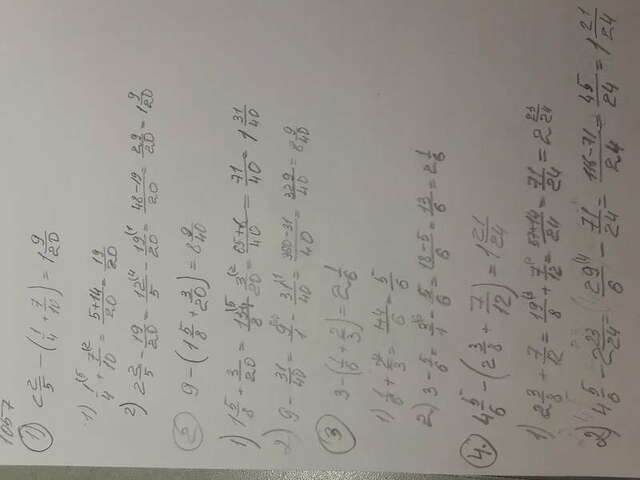 1057
1) 2 2/5 - (1/4 + 7/10) = 1 9/20
1) 1/4 + 7/10 = 5+14/20 = 19/20
2) 2 2/5 - 19/20 = 12/5 - 19/20 = 48-19/20 = 29/20 = 1 9/20
2) 9 - (1 5/8 + 3/20) = 8 9/40
1) 1 5/8 + 3/20 = 13/8 + 3/20 = 65+6/40 = 71/40 = 1 31/40
2) 9 - 31/40 = 9/1 - 31/40 = 360-31/40 = 329/40 = 8 9/40
3) 3 - (1/6 + 2/3) = 2 1/6
1) 1/6 + 2/3 = 1+4/6 = 5/6
2) 3 - 5/6 = 3/1 - 5/6 = 18-5/6 = 13/6 = 2 1/6
4. 4 5/6 - (2 3/8 + 7/12) = 1 21/24
1) 2 3/8 + 7/12 = 19/8 + 7/12 = 57+14/24 = 71/24 = 2 23/24
2) 4 5/6 - 2 23/24 = 29/6 - 71/24 = 116-71/24 = 45/24 = 1 21/24